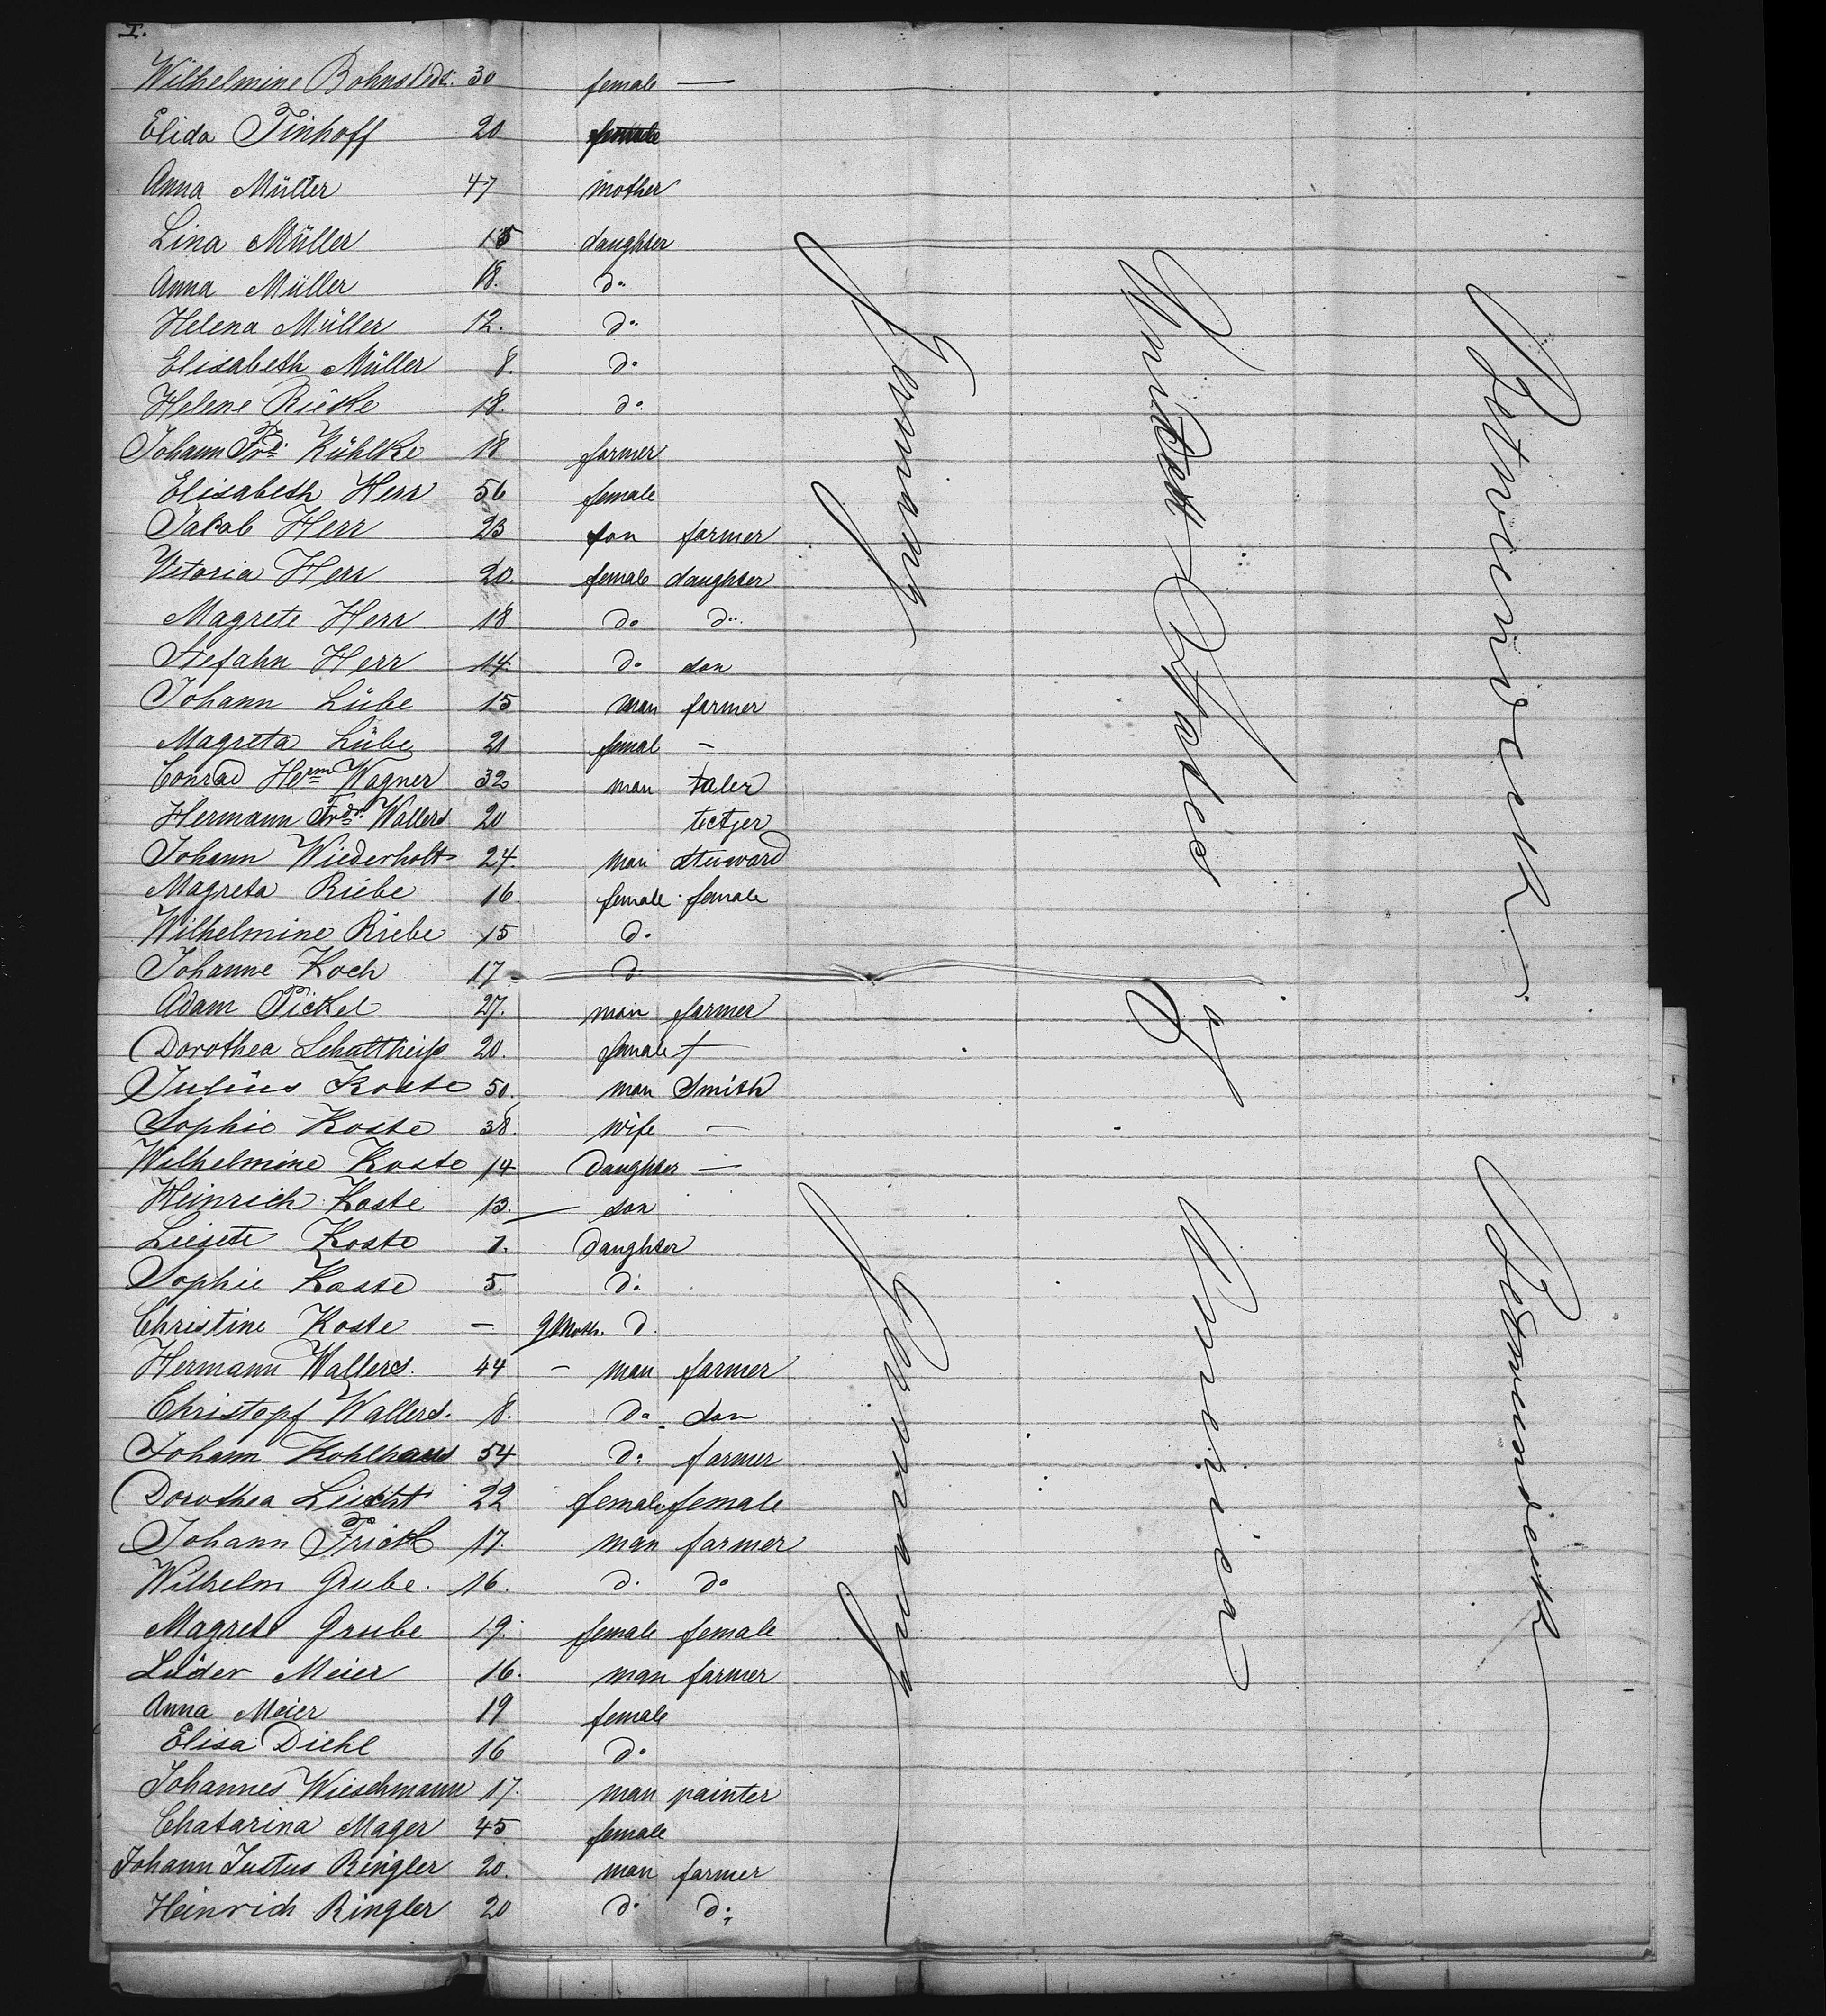 I.
Wilhelmine Bohnstedt. 30 female —
Elida Tinhoff 20 female
Anna Müller 47 mother
Lina Müller 15 daughter
Anna Müller 18. do
Helena Müller 12. do
Elisabeth Müller 8. do
Helene Rieke 18. do
Johann Frd. Kühlke 18 farmer
Elisabeth Herr 56 female
Jakob Herr 23 son farmer
Vitoria Herr 20 female daughter
Magrete Herr 18 do do
Stefahn Herr 14. do son
Johann Lübe 15 man farmer
Magreta Lübe 21 femal —
Conrad Herm Wagner 32 man taler
Hermann Frdr. Wallers 20
Johann Wiederholt 24. man Stuward
Magreta Riebe 16. female female
Wilhelmine Riebe 15 do
Johanne Koch 17 d
Adam Pickel 27. man farmer
Dorothea Schultheiß 20. female —
Julius Koste 50. man Smith
Sophie Koste 38. wife —
Wilhelmine Koste 14 Daughter —
Heinrich Koste 13. son
Liesete Koste 1. Daughter
Sophie Koste 5. do
Christine Koste — d.
Hermann Wallers. 44 — man farmer
Christopf Wallers. 8. do son
Johann Kohlhaus 54 do farmer
Dorothea Liecht 22 female female
Johann Frick 17. man farmer
Wilhelm Grube. 16. d. do
Magrete Grube 19. female female
Lüder Meier 16. man farmer
Anna Meier 19 female
Elisa Diehl 16 do
Johannes Wieschmann 17. man painter
Chatarina Mager 45 female
Johann Justus Ringler 20. man farmer
Heinrich Ringler 20 do do
Germany
United States
of
America
Germany
Betweendeck
Betweendeck